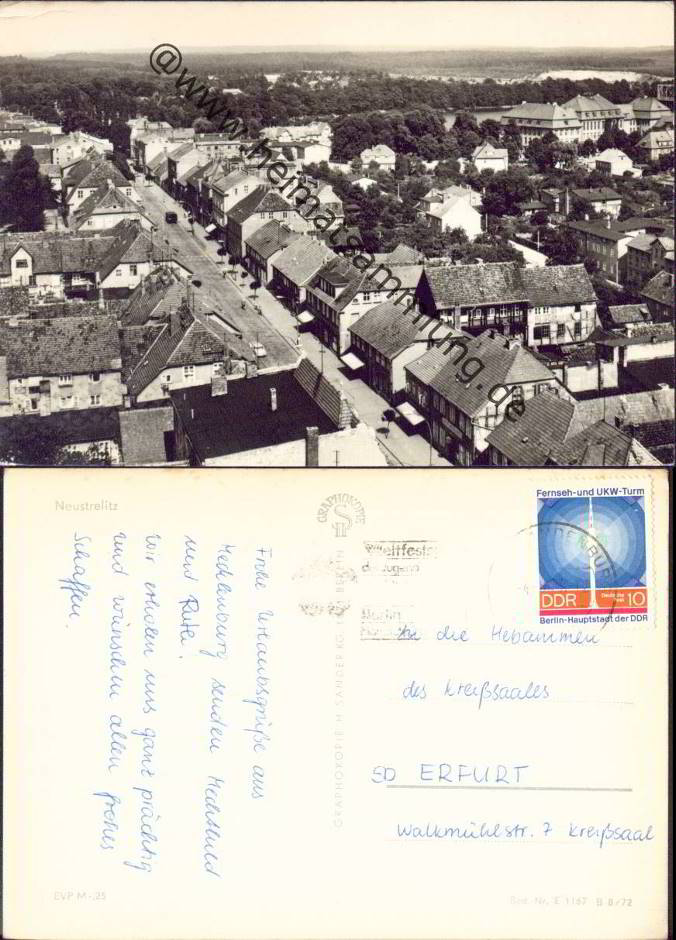 @www.heimatsammlung.de
Neustrelitz
Frohe Urlaubsgrüße aus
Mecklenburg senden Mechthild
und Rute!
Wir erholen uns ganz prächtig
und wünschen allen frohes
Schaffen.
EVP M -,25
GRAPHOKOPIE
GRAPHOKOPIE H. SANDER KG. BERLIN
Fernseh- und UKW-Turm
DDR 10
Berlin-Hauptstadt der DDR
Weltfests
der Jugend
Berlin
An die Hebammen
des Kreißsaales
50 ERFURT
Walkmühlstr. 7 Kreißsaal
Best. Nr. E 1167 B 8/72